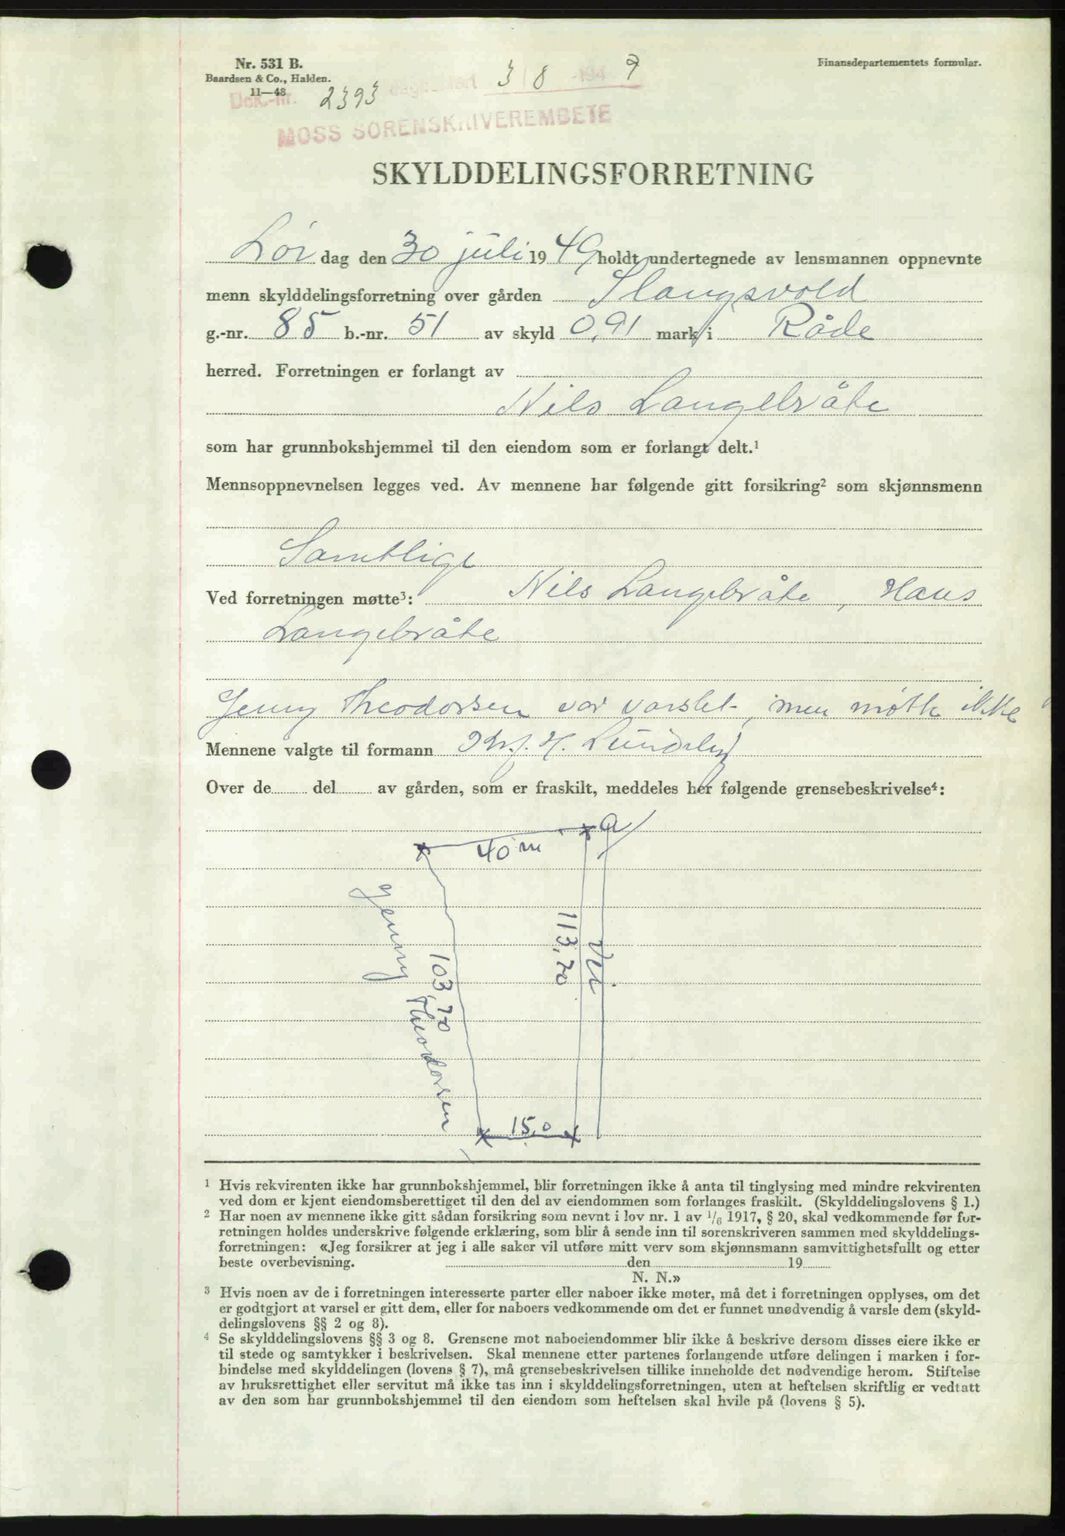 Nr. 531 B.
Baardsen & Co., Halden.
11—48
Finansdepartementets formular.
Dok.-nr. 2393 dagbokført 3/8 -1949
MOSS SORENSKRIVEREMBETE
SKYLDDELINGSFORRETNING
Lør dag den 30 juli 1949 holdt undertegnede av lensmannen oppnevnte
menn skylddelingsforretning over gården Slangsvold
g.-nr. 85 b.-nr. 51 av skyld 0,91 mark i Råde
herred. Forretningen er forlangt av
Nils Langebråte
som har grunnbokshjemmel til den eiendom som er forlangt delt.¹
Mennsoppnevnelsen legges ved. Av mennene har følgende gitt forsikring² som skjønnsmenn
Samtlige
Ved forretningen møtte³: Nils Langebråte, Hans
Langebråte
Jenny Theodorsen var varslet, men møtte ikke
Mennene valgte til formann H. Lundeby
Over de del av gården, som er fraskilt, meddeles her følgende grensebeskrivelse⁴:
a
40 m
113,70
Vei
103,70
Jenny Theodorsen
15,0
¹ Hvis rekvirenten ikke har grunnbokshjemmel, blir forretningen ikke å anta til tinglysing med mindre rekvirenten
ved dom er kjent eiendomsberettiget til den del av eiendommen som forlanges fraskilt. (Skylddelingslovens § 1.)
² Har noen av mennene ikke gitt sådan forsikring som nevnt i lov nr. 1 av 1/6 1917, § 20, skal vedkommende før for-
retningen holdes underskrive følgende erklæring, som blir å sende inn til sorenskriveren sammen med skylddelings-
forretningen: «Jeg forsikrer at jeg i alle saker vil utføre mitt verv som skjønnsmann samvittighetsfullt og etter
beste overbevisning. den 19
N. N.»
³ Hvis noen av de i forretningen interesserte parter eller naboer ikke møter, må det i forretningen opplyses, om det
er godtgjort at varsel er gitt dem, eller for naboers vedkommende om det er funnet unødvendig å varsle dem (skyld-
delingslovens §§ 2 og 8).
⁴ Se skylddelingslovens §§ 3 og 8. Grensene mot naboeiendommer blir ikke å beskrive dersom disses eiere ikke er
til stede og samtykker i beskrivelsen. Skal mennene etter partenes forlangende utføre delingen i marken i for-
bindelse med skylddelingen (lovens § 7), må grensebeskrivelsen tillike inneholde det nødvendige herom. Stiftelse
av bruksrettighet eller servitut må ikke tas inn i skylddelingsforretningen, uten at heftelsen skriftlig er vedtatt
av den som har grunnbokshjemmel til den eiendom som heftelsen skal hvile på (lovens § 5).